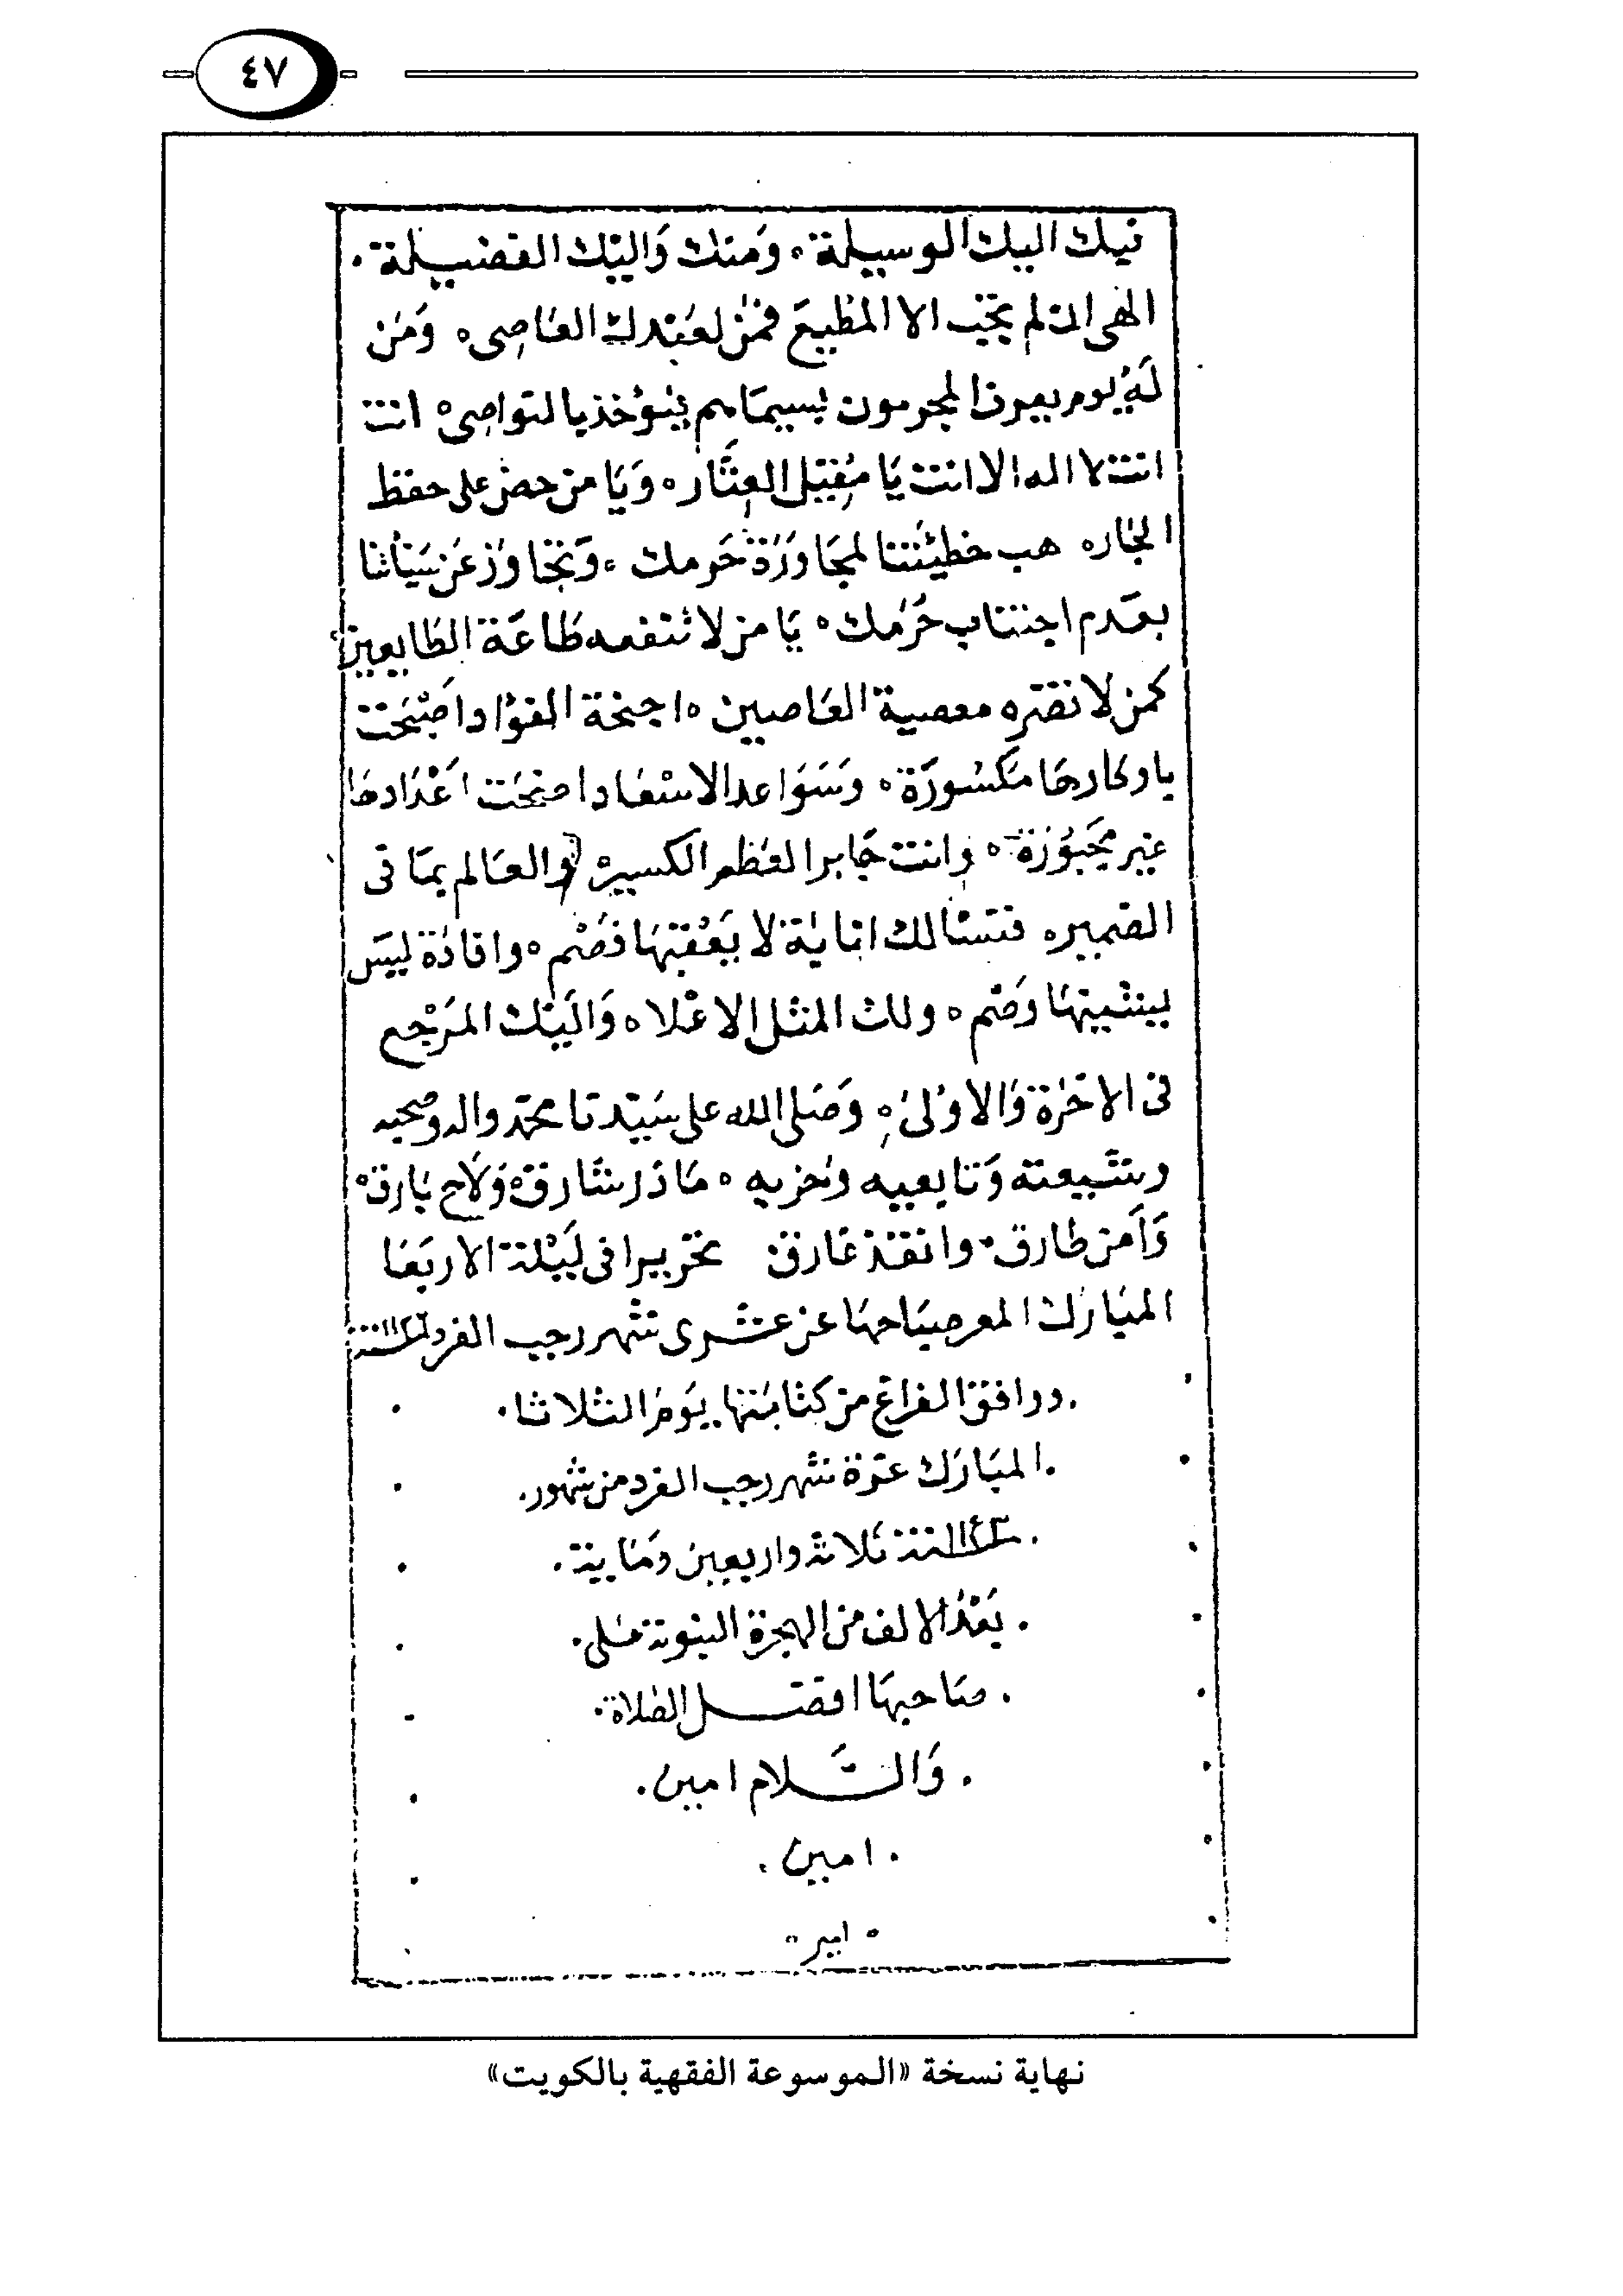 ٤٧
نيك اليك الوسيلة ٥ ومنك واليك الفضيلة ٠
الهى ان لم تحب الا المطيع فمن لعبدك العاصى ٥ ومن
له يوم يعرف المجرمون بسيماهم فيؤخذ بالنواصى ٥ انت
انت لا اله الا انت يا مقيل العثار ٥ ويا من حض على حفظ
الجار ٥ هب خطيئتنا لمجاورة حرمك ٥ وتجاوز عن سيأتنا
بعدم اجتناب حرمك ٥ يا من لا تنفعه طاعة الطايعين
كمن لا تضره معصية العاصين ٥ اجنحة الفؤاد اصبحت
باوكارها مكسورة ٥ وسواعد الاسعاد اضحت اعدادها
غير مجبورة ٥ وانت جابر العظم الكسير ٥ والعالم بما فى
الضمير ٥ فنسئالك انابة لا يعقبها فصم ٥ وافادة ليس
وصم ٥ ولك المثل الاعلا ٥ واليك المرجع
فى الاخرة والاولى ٥ وصلى الله على سيدنا محمد واله وصحبه
وشيعته وتابعيه وحزبه ٥ ما ذر شارق ٥ ولاح بارق ٥
وامن طارق ٠ وانقذ غارق تحريرا فى ليلة الاربعا
المبارك صباحها عن عشرى شهر رجب الفرد
٠ ووافق الفراغ من كتابتها يوم الثلاثا ٠
٠ المبارك غرة شهر رجب الفرد من شهور ٠
٠ سنة ١١٤٣ ثلاثة واربعين وماية ٠
٠ بعد الالف من الهجرة النبوية على ٠
٠ صاحبها افضل الصلاة ٠
٠ والسلام امين ٠
٠ امين ٠
٥ امين ٥
نهاية نسخة «الموسوعة الفقهية بالكويت»